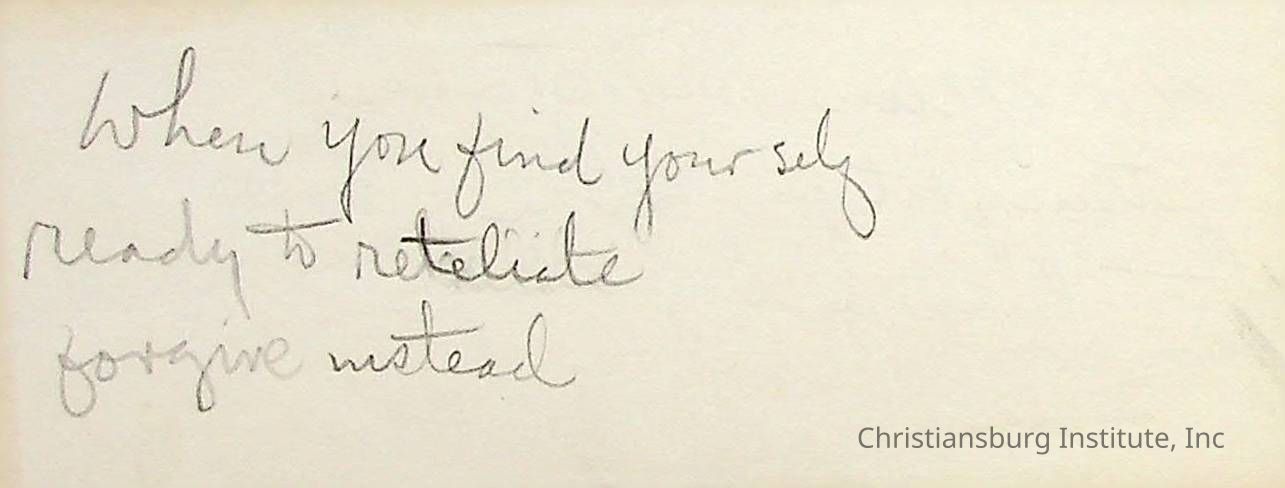 When you find your self
ready to reteliate
forgive instead
Christiansburg Institute, Inc